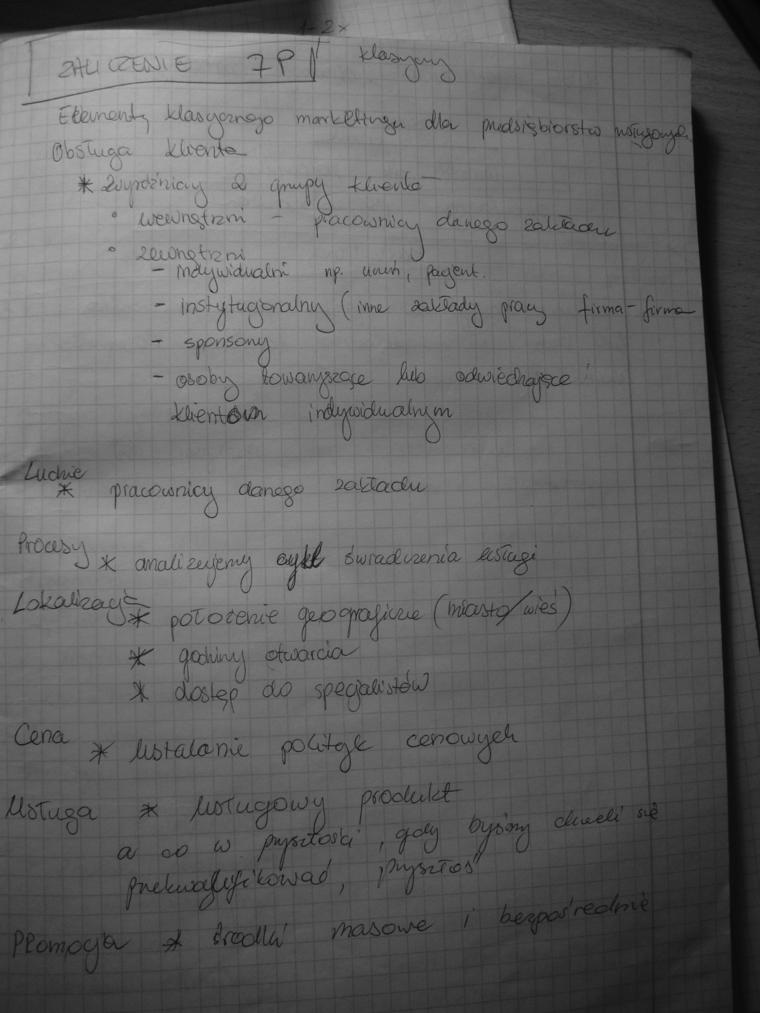 1-2x
ZALICZENIE 7P klasyczny
Elementy klasycznego marketingu dla przedsiębiorstw usługowych
Obsługa klienta
* Wyróżniamy 2 grupy klientó
• wewnętrzni - pracownicy danego zakładu
• zewnętrzni
- indywidualni np. uczeń, pacjent.
- instytucjonalny (inne zakłady pracy firma-firma
- sponsorzy
- osoby towarzyszące lub odwiedzające
klientom indywidualnym
Ludzie
* pracownicy danego zakładu
Procesy * analizujemy cykl świadczenia usługi
Lokalizacja
* położenie geograficzne (miasto/wieś)
* godziny otwarcia
* dostęp do specjalistów
Cena * Ustalanie polityk cenowych
Usługa * Usługowy produkt
a co w przyszłości, gdy byśmy chcieli się
przekwalifikować, przyszłoś
Promocja * środki masowe i bezpośrednie